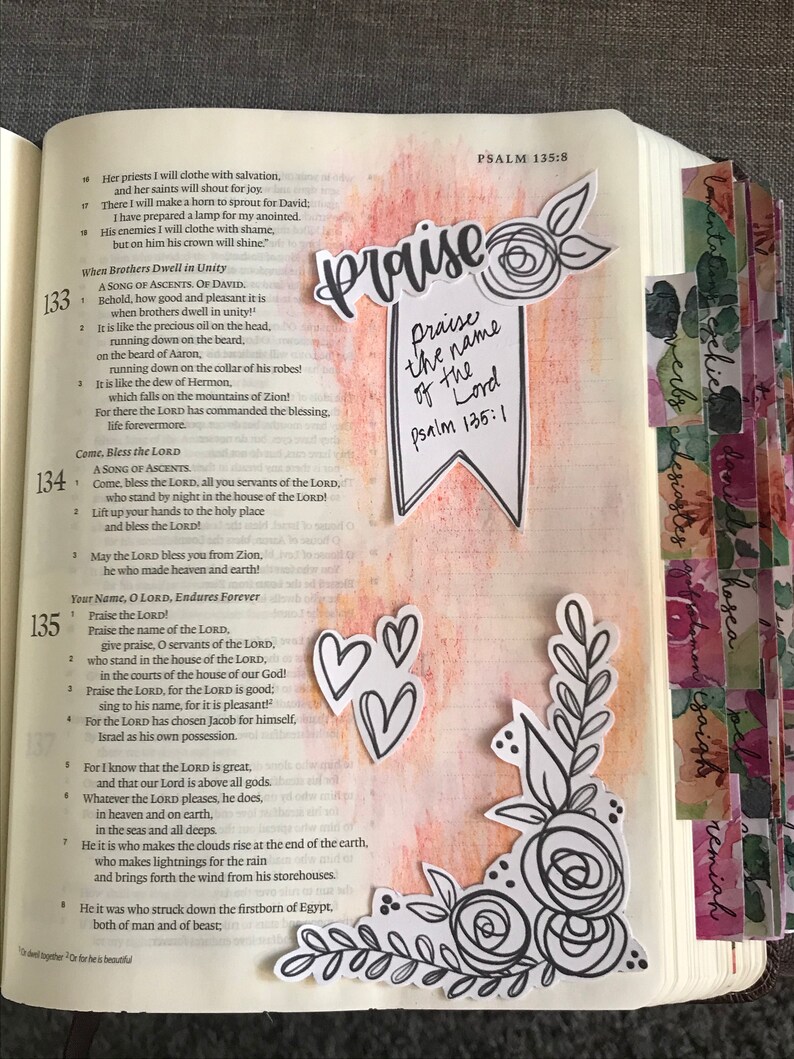 PSALM 135:8
16 Her priests I will clothe with salvation,
and her saints will shout for joy.
17 There I will make a horn to sprout for David;
I have prepared a lamp for my anointed.
18 His enemies I will clothe with shame,
but on him his crown will shine.”
When Brothers Dwell in Unity
133
A SONG OF ASCENTS. OF DAVID.
1 Behold, how good and pleasant it is
when brothers dwell in unity!1
2 It is like the precious oil on the head,
running down on the beard,
on the beard of Aaron,
running down on the collar of his robes!
3 It is like the dew of Hermon,
which falls on the mountains of Zion!
For there the LORD has commanded the blessing,
life forevermore.
Come, Bless the LORD
134
A SONG OF ASCENTS.
1 Come, bless the LORD, all you servants of the LORD,
who stand by night in the house of the LORD!
2 Lift up your hands to the holy place
and bless the LORD!
3 May the LORD bless you from Zion,
he who made heaven and earth!
Your Name, O LORD, Endures Forever
135
1 Praise the LORD!
Praise the name of the LORD,
give praise, O servants of the LORD,
2 who stand in the house of the LORD,
in the courts of the house of our God!
3 Praise the LORD, for the LORD is good;
sing to his name, for it is pleasant!2
4 For the LORD has chosen Jacob for himself,
Israel as his own possession.
5 For I know that the LORD is great,
and that our Lord is above all gods.
6 Whatever the LORD pleases, he does,
in heaven and on earth,
in the seas and all deeps.
7 He it is who makes the clouds rise at the end of the earth,
who makes lightnings for the rain
and brings forth the wind from his storehouses.
8 He it was who struck down the firstborn of Egypt,
both of man and of beast;
1 Or dwell together 2 Or for he is beautiful
praise
praise
the name
of the
Lord
psalm 135:1
lamentations
ezekiel
daniel
hosea
joel
ecclesiastes
isaiah